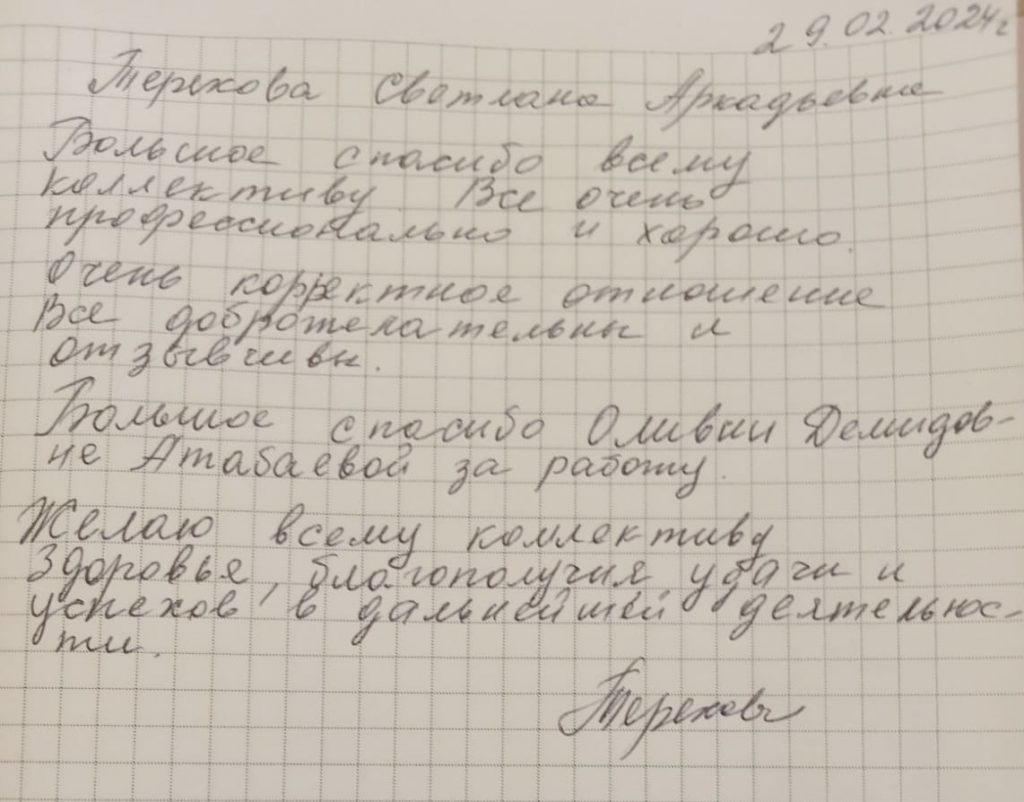 29.02.2024г
Терехова Светлана Аркадьевна
Большое спасибо всему
коллективу. Все очень
профессионально и хорошо.
Очень корректное отношение
Все доброжелательны и
отзывчивы.
Большое спасибо Оливии Демидов-
не Атабаевой за работу.
Желаю всему коллективу
здоровье, благополучия удачи и
успехов в дальнейшей деятельнос-
ти.
Терехова